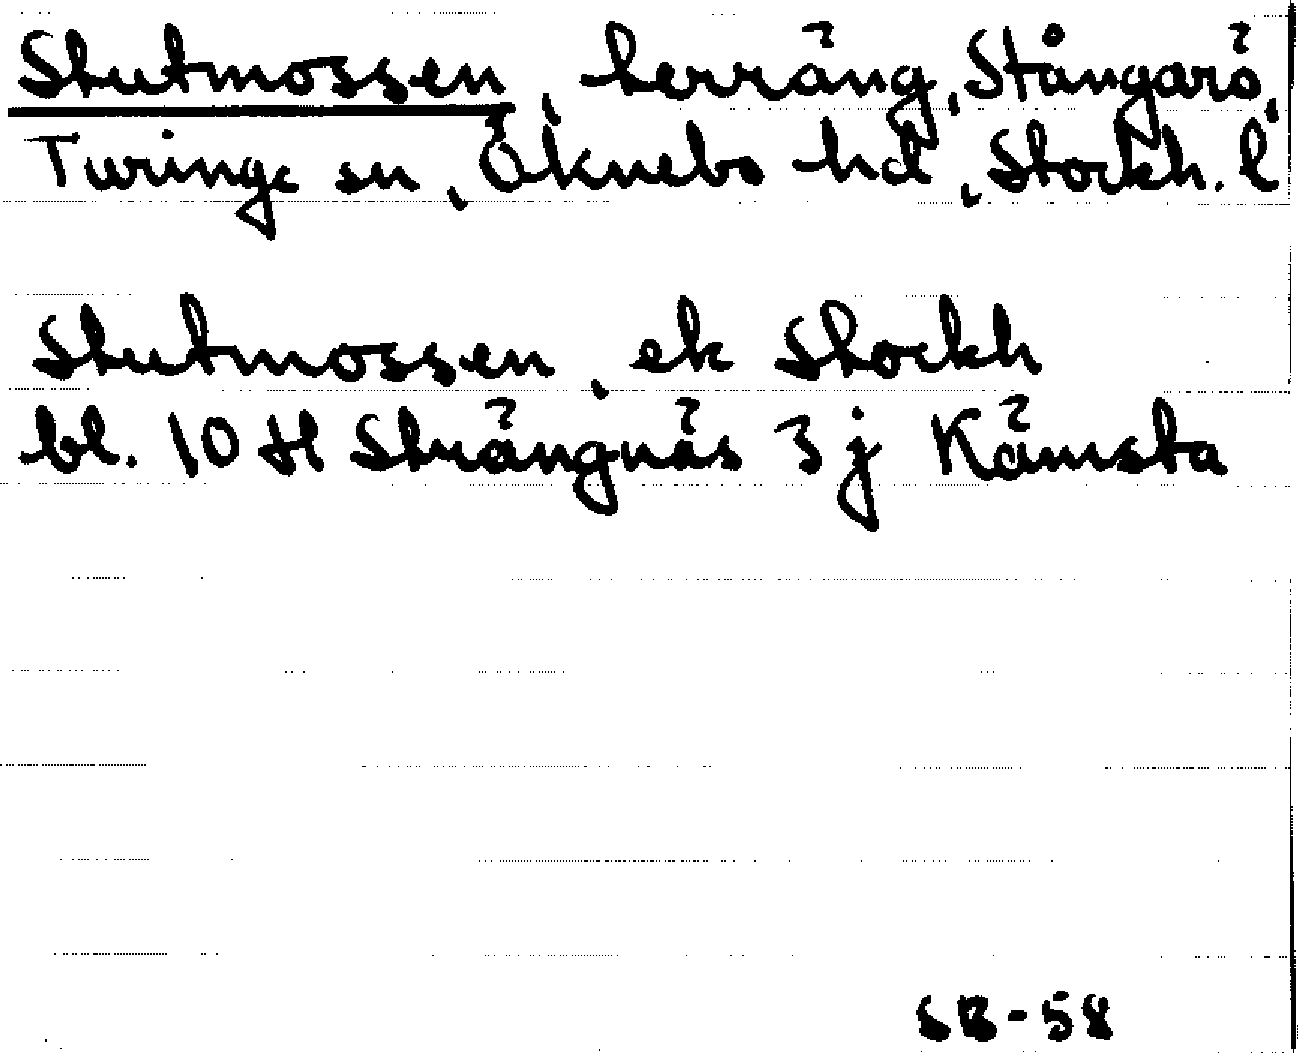 Stutmossen, terräng, Stångarö,
Turinge sn, Öknebo hd, Stockh. l
Stutmossen, ek Stockh
bl. 10 H Strängnäs 3 j Kämsta
SB-58